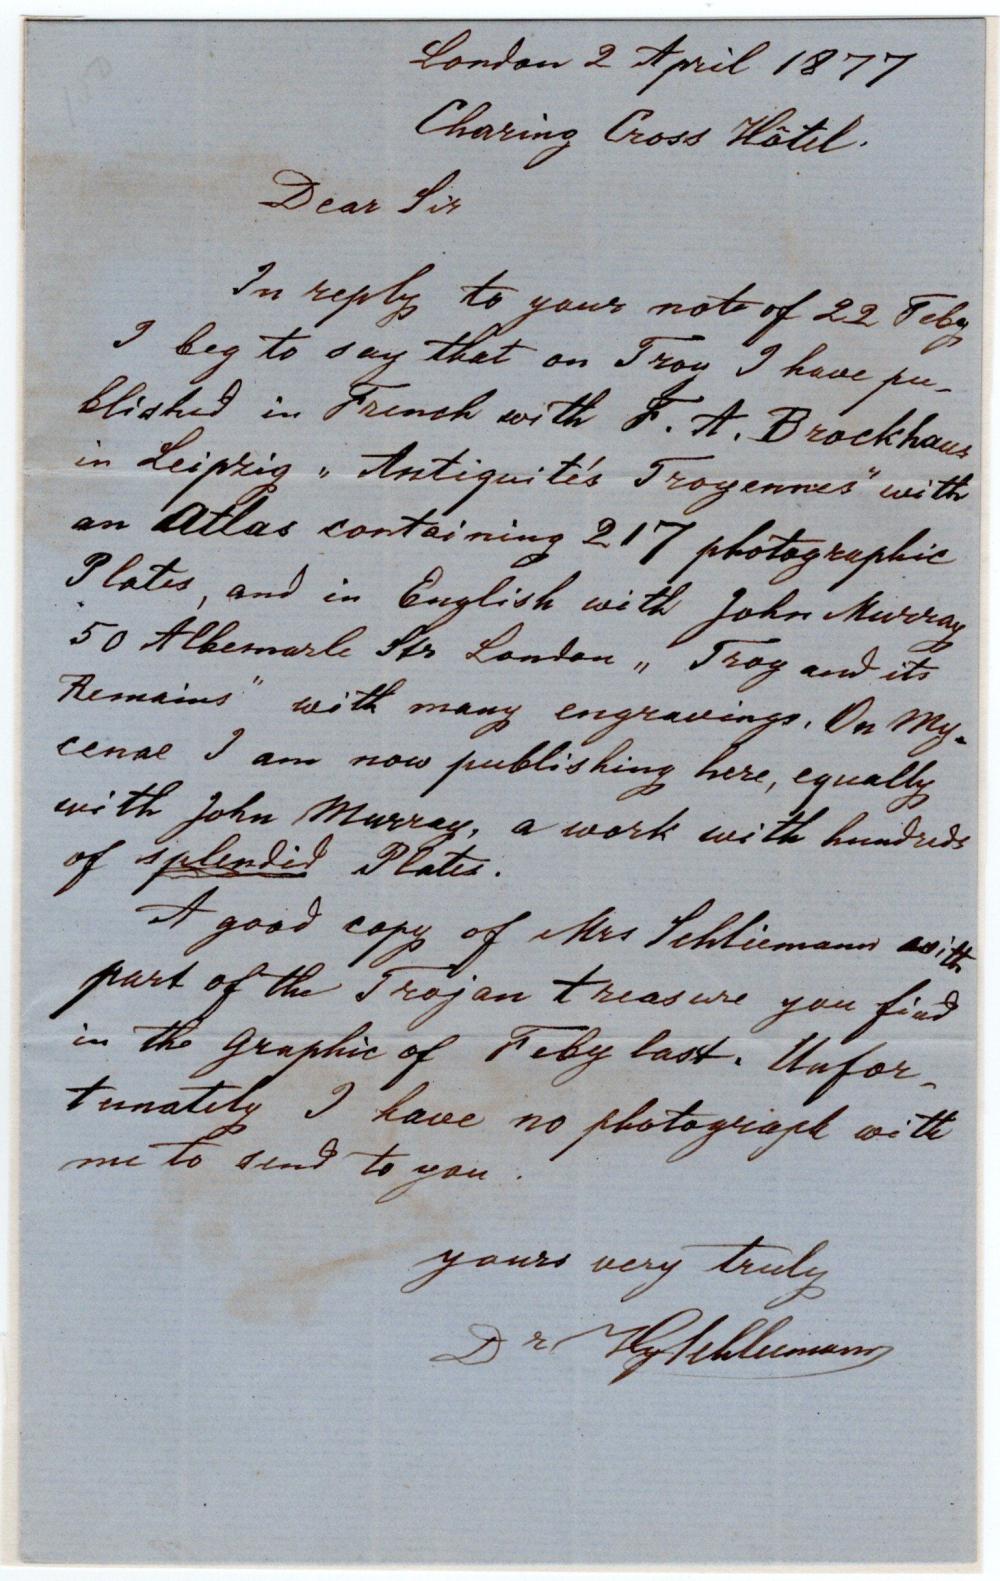 London 2 April 1877
Charing Cross Hôtel.
Dear Sir
In reply to your note of 22 Feby
I beg to say that on Troy I have pu-
blished in French with F. A. Brockhaus
in Leipzig „ Antiquités Troyennes" with
an Atlas containing 217 photographic
Plates, and in English with John Murray
50 Albemarle Str London „ Troy and its
Remains" with many engravings. On My-
cenae I am now publishing here, equally
with John Murray, a work with hundreds
of splendid Plates.
A good copy of Mrs Schliemann with
part of the Trojan treasure you find
in the Graphic of Feby last. Unfor-
tunately I have no photograph with
me to send to you.
yours very truly
Dr Hy Schliemann